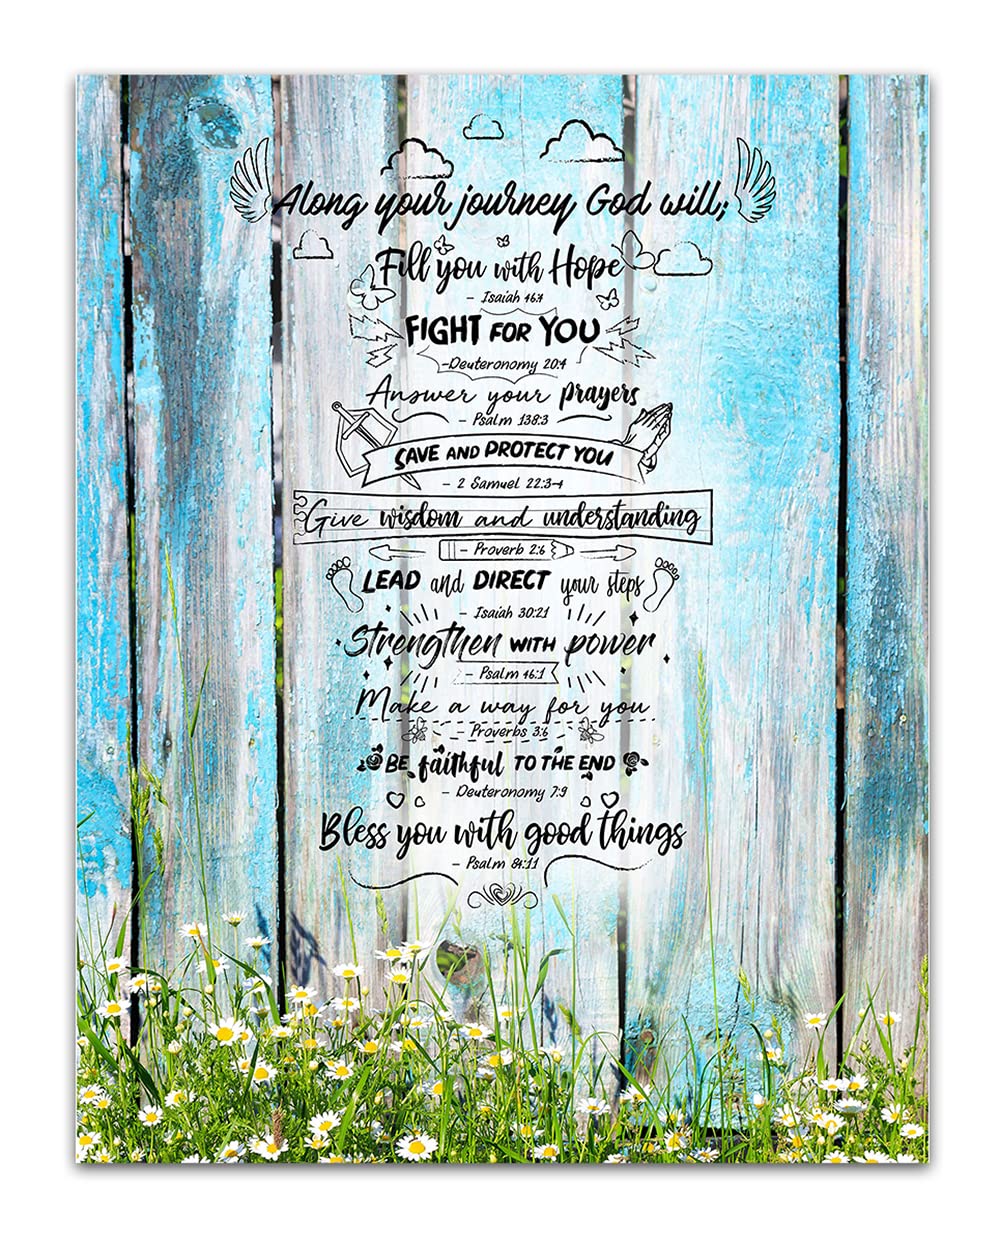 Along your journey God will;
Fill you with Hope
- Isaiah 46:4
FIGHT FOR YOU
-Deuteronomy 20:4
Answer your prayers
- Psalm 138:3
SAVE AND PROTECT YOU
- 2 Samuel 22:3-4
Give wisdom and understanding
- Proverb 2:6
LEAD and DIRECT your steps
- Isaiah 30:21
Strengthen WITH power
- Psalm 46:1
Make a way for you
- Proverbs 3:6
BE faithful TO THE END
- Deuteronomy 7:9
Bless you with good things
- Psalm 84:11